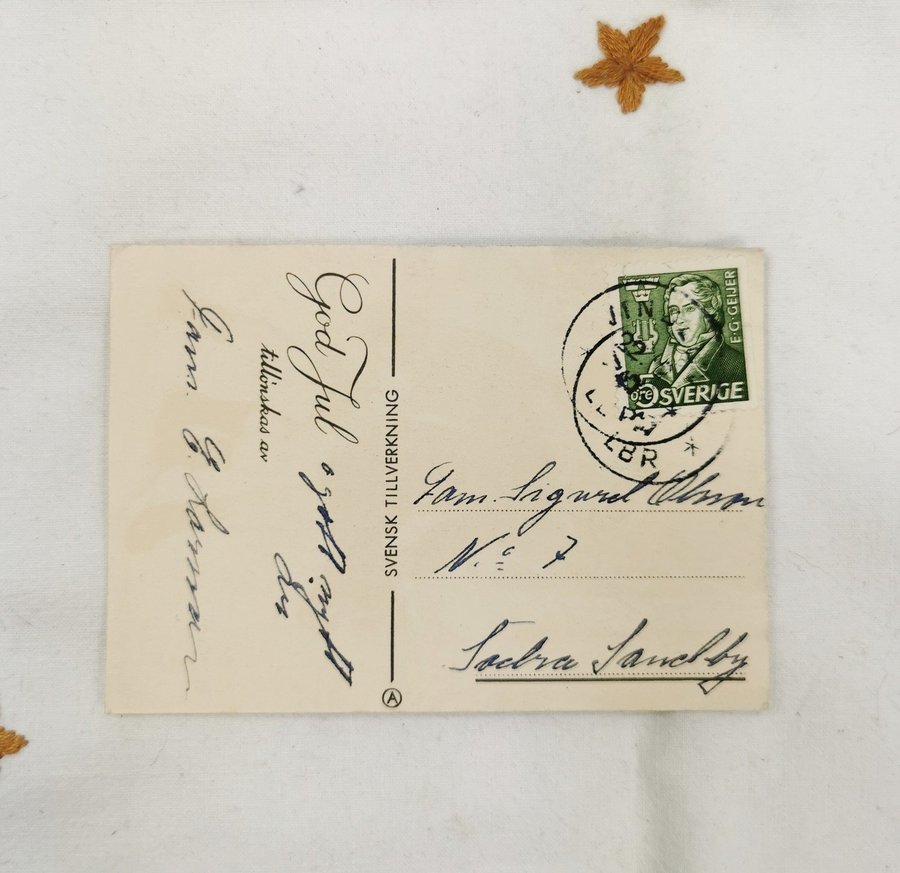 God Jul
o gott nytt
år
tillönskas av
Fam. E Larsson
SVENSK TILLVERKNING
A
E·G·GEIJER
5 öre SVERIGE
LBR
Fam. Sigurd Olsson
N:o 7
Södra Sandby